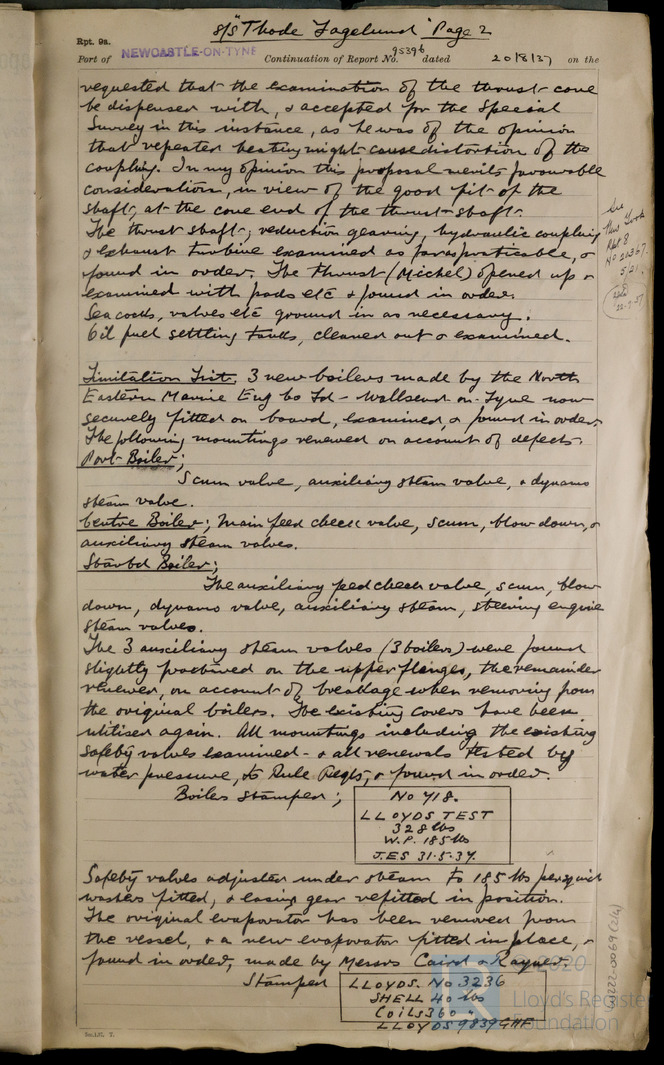 S/S "Thode Fagelund" Page 2
Rpt. 9a.
Port of NEWCASTLE-ON-TYNE Continuation of Report No. 95396 dated 20/8/37 on the
requested that the examination of the thrust cone
be dispensed with, & accepted for the Special
Survey in this instance, as he was of the opinion
that repeated heating might cause distortion of the
coupling. In my opinion this proposal merits favourable
consideration, in view of the good fit of the
shaft, at the cone end of the thrust shaft.
The thrust shaft, reduction gearing, hydraulic coupling
& exhaust turbine examined as far as practicable, &
found in order. The thrust (Michel) opened up &
examined with pads etc & found in order.
Sea cocks, valves etc ground in as necessary.
Oil fuel settling tanks, cleaned out & examined.
Limitation List. 3 new boilers made by the North
Eastern Marine Eng Co Ltd - Wallsend on-Tyne now
securely fitted on board, examined, & found in order.
The following mountings renewed on account of defects.
Port Boiler;
Scum valve, auxiliary steam valve, & dynamo
steam valve.
Centre Boiler; Main feed check valve, scum, blow down, &
auxiliary steam valves.
Starbd Boiler;
The auxiliary feed check valve, scum, blow
down, dynamo valve, auxiliary steam, steering engine
steam valves.
The 3 auxiliary steam valves (3 boilers) were found
slightly fractured on the upper flanges, the remainder
renewed, on account of breakage when removing from
the original boilers. The existing covers have been
utilised again. All mountings including the existing
safety valves examined - & all renewals tested by
water pressure, to Rule Reqts, & found in order.
Boiler stamped;
No 718.
LLOYDS TEST
328 lbs
W.P. 185 lbs
J.E.S 31.5.37.
Safety valves adjusted under steam to 185 lbs per sq inch
washers fitted, & easing gear refitted in position.
The original evaporator has been removed from
the vessel, & a new evaporator fitted in place, &
found in order, made by Messrs Caird & Rayner.
Stamped
LLOYDS. No 3236
SHELL 40 lbs
Coils 360 "
LLOYDS 9839 GHF
See
New York
Rpt 8
No 20367
W222-0069 (2/4)
2020
Lloyd's Register
Foundation